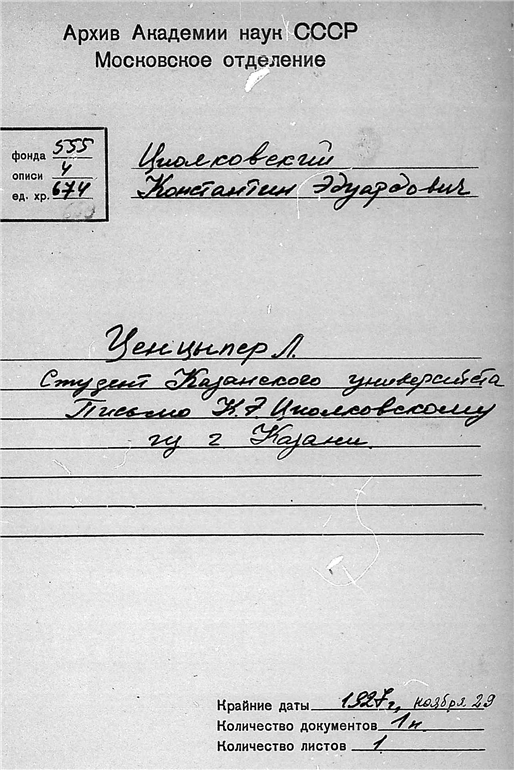 Архив Академии наук СССР
Московское отделение
фонда 555
описи 4
ед. хр. 674
Циолковский
Константин Эдуардович
Ценцыпер Л.
Студент Казанского университета
Письмо К.Э. Циолковскому
из г Казани.
Крайние даты 1927 г, ноября 29
Количество документов 1
Количество листов 1